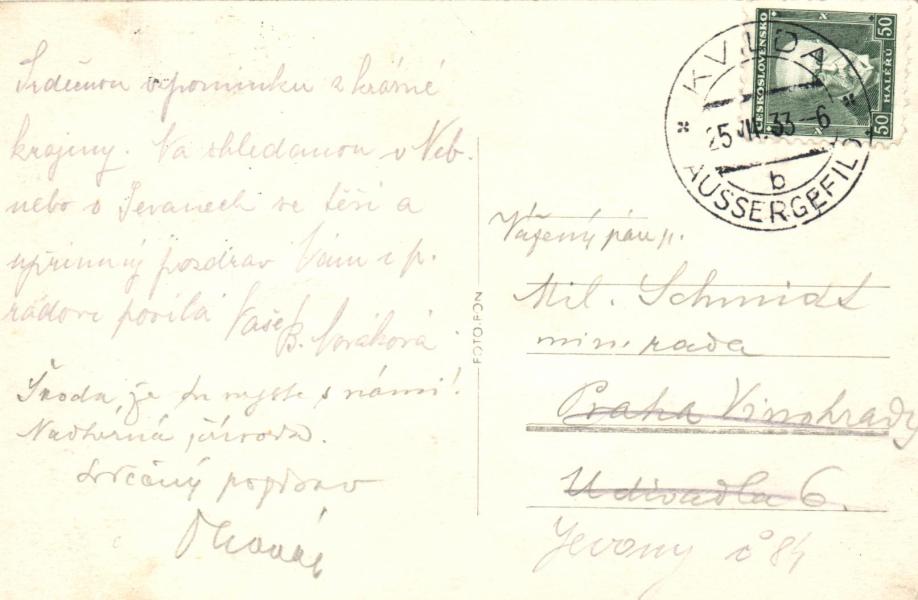 Srdečnou vzpomínku z krásné
krajiny. Na shledanou v Neb.
nebo v Jevanech se těší a
upřímný pozdrav Vám i p.
radovi posílá Vaše
B. Nováková
Škoda, že tu nejste s námi!
Nádherná příroda.
Srdečný pozdrav
FOTO-FON
KVILDA
25 33 -6
b
AUSSERGEFILD
ČESKOSLOVENSKO
50 HALÉŘŮ 50
Vážený pán p.
Mil. Schmidt
min. rada
Praha Vinohrady
U divadla 6.
Jevany č 84